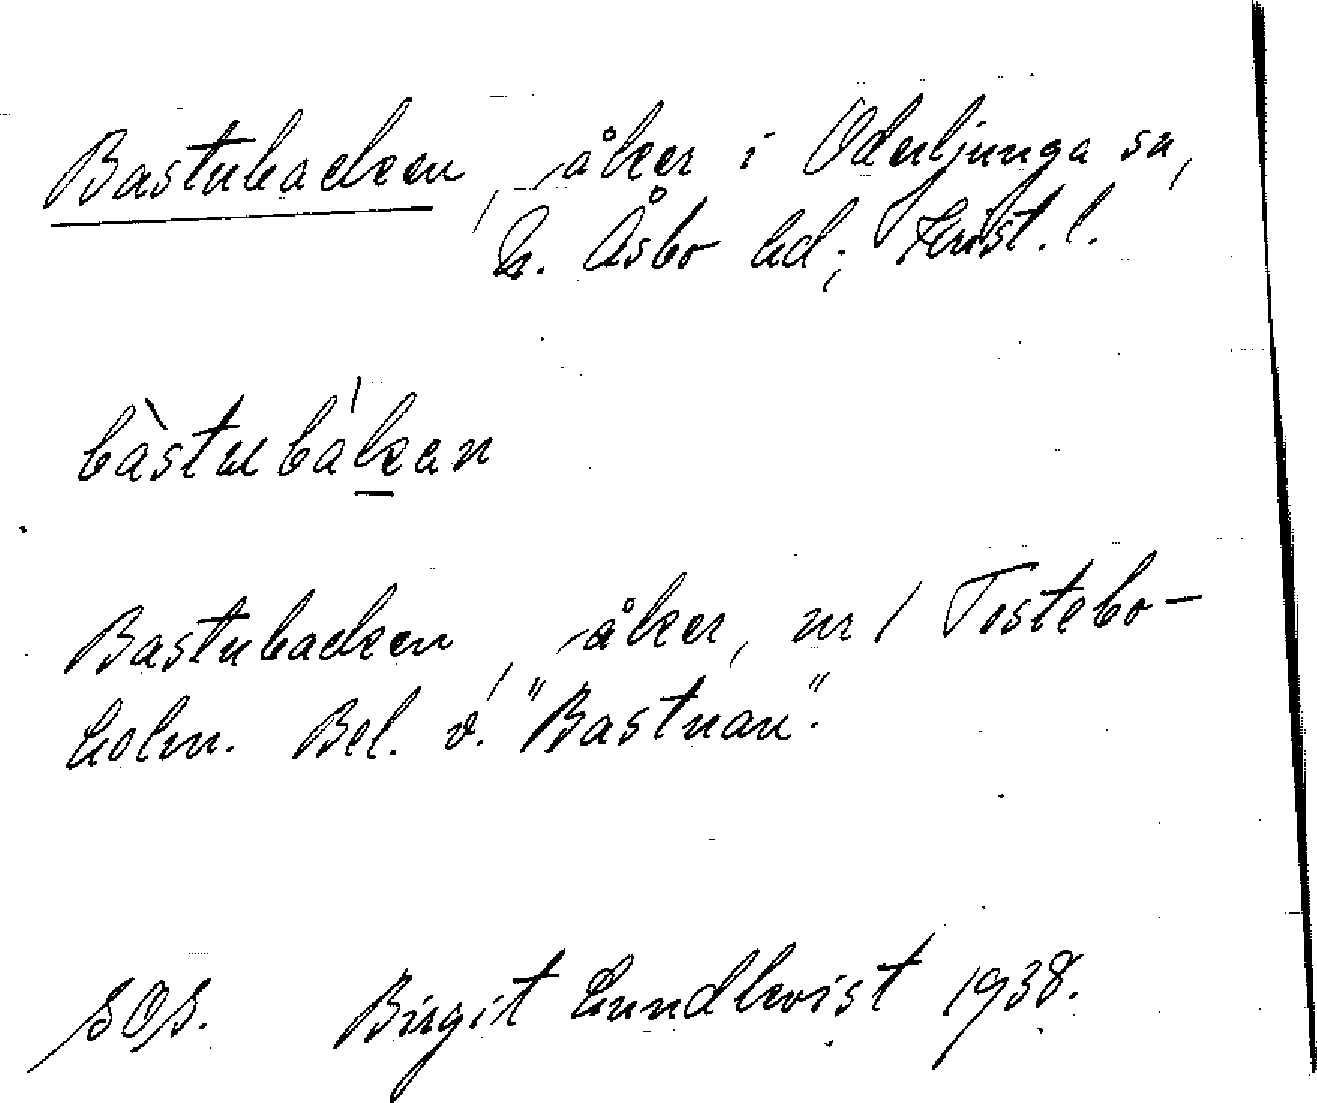 Bastubacken, åker i Oderljunga sn,
N. Åsbo hd; Krist. l.
bàstubákan
Bastubacken, åker, nr 1 Tostebo-
holm. Bel. v. "Bastuan".
SOS. Birgit Lundkvist 1938.